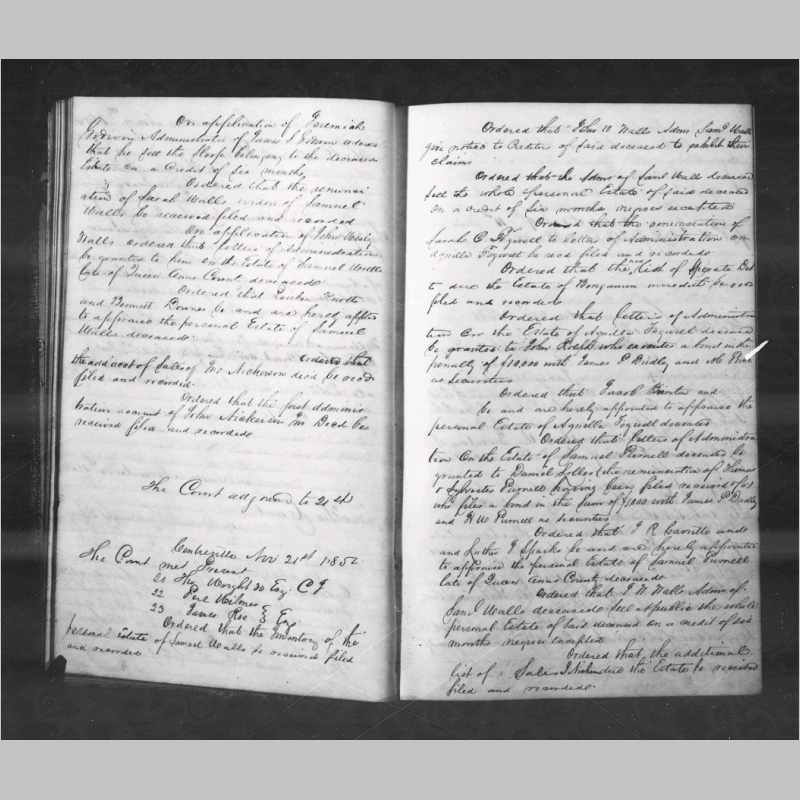 On application of Jeremiah
Administrator of Isaac J. Godwin ordered
that he sell the Sloop belonging to the deceased
Estate on a Credit of Six months
Ordered that the renunci
ation of Sarah Walls widow of Samuel
Walls be received filed and recorded
On application of John Wesley
Walls ordered that letters of administration
be granted to him on the Estate of Samuel Walls
late of Queen Anns County deceased
Ordered that
and Bennett be and are hereby appted
to appraise the personal Estate of Samuel
Walls deceased
Ordered that
the add acct of Sales of Nickerson decd be recd
filed and recorded
Ordered that the first adminis
tration account of John Nickerson Decd be
received filed and recorded
The Court adjourned to 21st
Centreville Nov 21st 185
The Court met Present
21 Thos Wright 30 Esq. C J
22
23 James Roe Esq
Ordered that the Inventory of the
personal Estate of Samuel Walls be received filed
and recorded
Ordered that John W Walls Admr Saml Walls
give notice to Creditors of said deceased to exhibit their
claims
Ordered that the Admr of Saml Walls deceased
sell the whole personal Estate of said deceased
on a credit of Six months negroes excepted
Ordered that the renunciation of
Sarah C. to letters of Administration on
be recd filed and recorded
Ordered that the List of Sperate Debts
due the Estate of Benjamin be recd
filed and recorded
Ordered that letters of Administra
tion on the Estate of deceased
be granted to John who executes a bond in the
penalty of $10,000 with James P Dudley and
as Securities
Ordered that Jacob and
be and are hereby appointed to appraise the
personal Estate of deceased
Ordered that letters of Administra
tion on the Estate of Samuel Purnell deceased be
granted to Daniel (the renunciation of Thomas
& Sylvester Purnell having been filed received &c)
who files a bond in the sum of with James P Dudley
and H W Purnell as Securities
Ordered that J R
and Luther J Sparks be and are hereby appointed
to appraise the personal Estate of Samuel Purnell
late of Queen Anns County deceased
Ordered that J W Walls Admr of
Saml Walls deceased sell at public the whole
personal Estate of said deceased on a credit of six
months negroes excepted
Ordered that the additional
list of Sales the Estate be received
filed and recorded